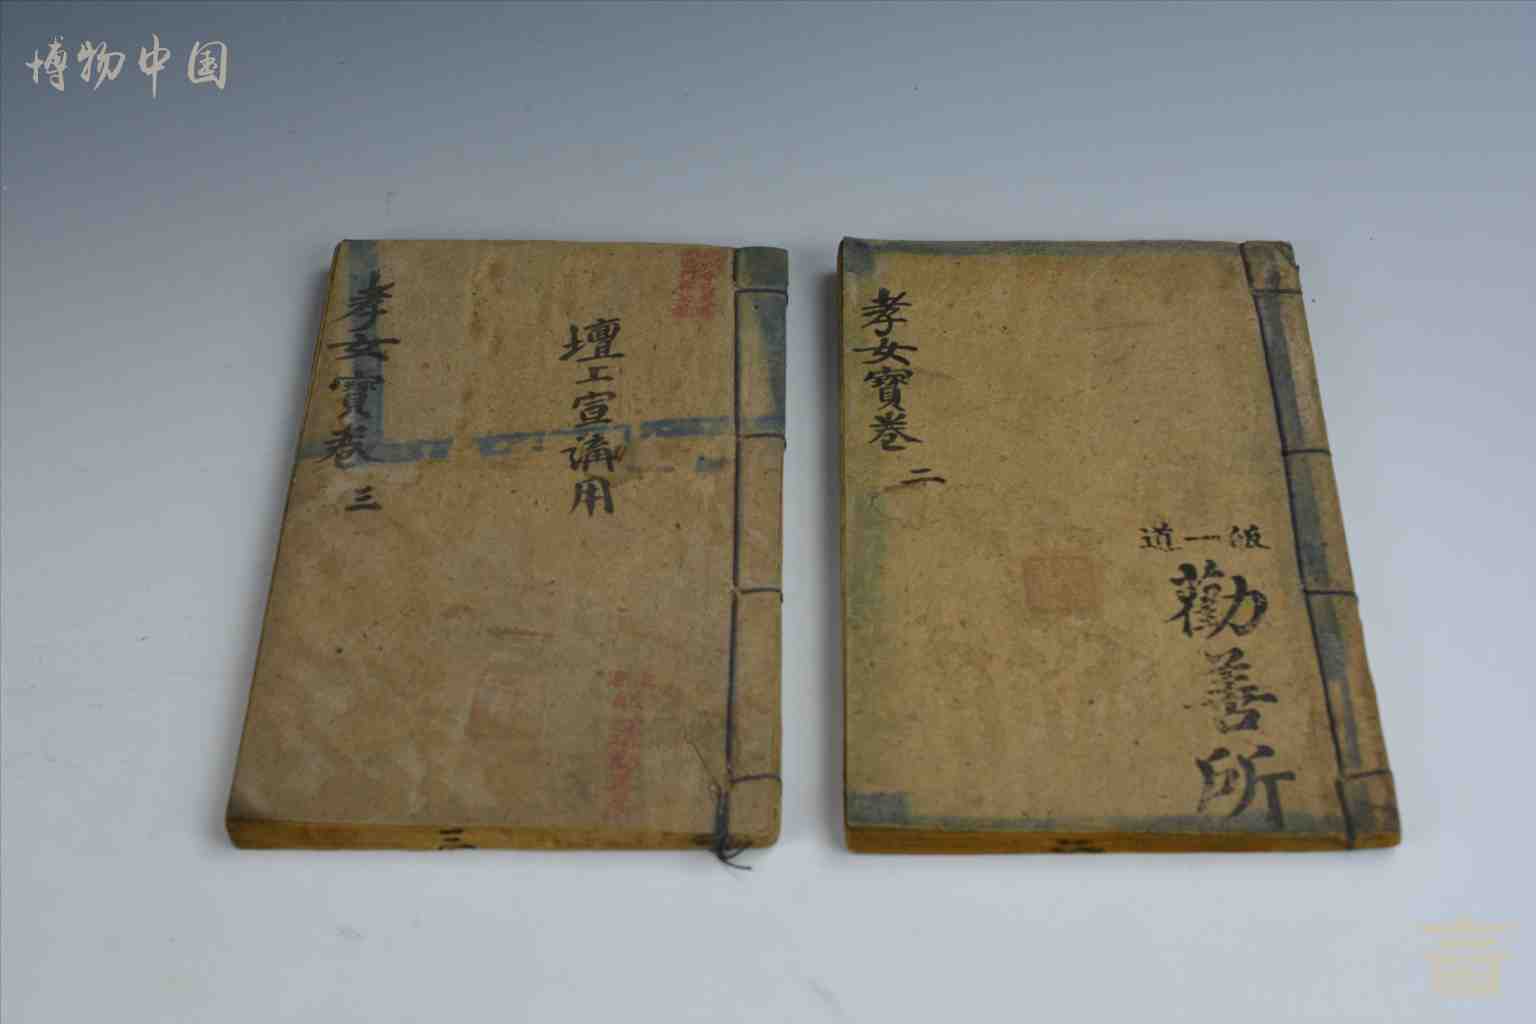 博物中国
孝女寶卷 三
壇工宣講用
三
孝女寶卷 二
道一皈
勸善所
二